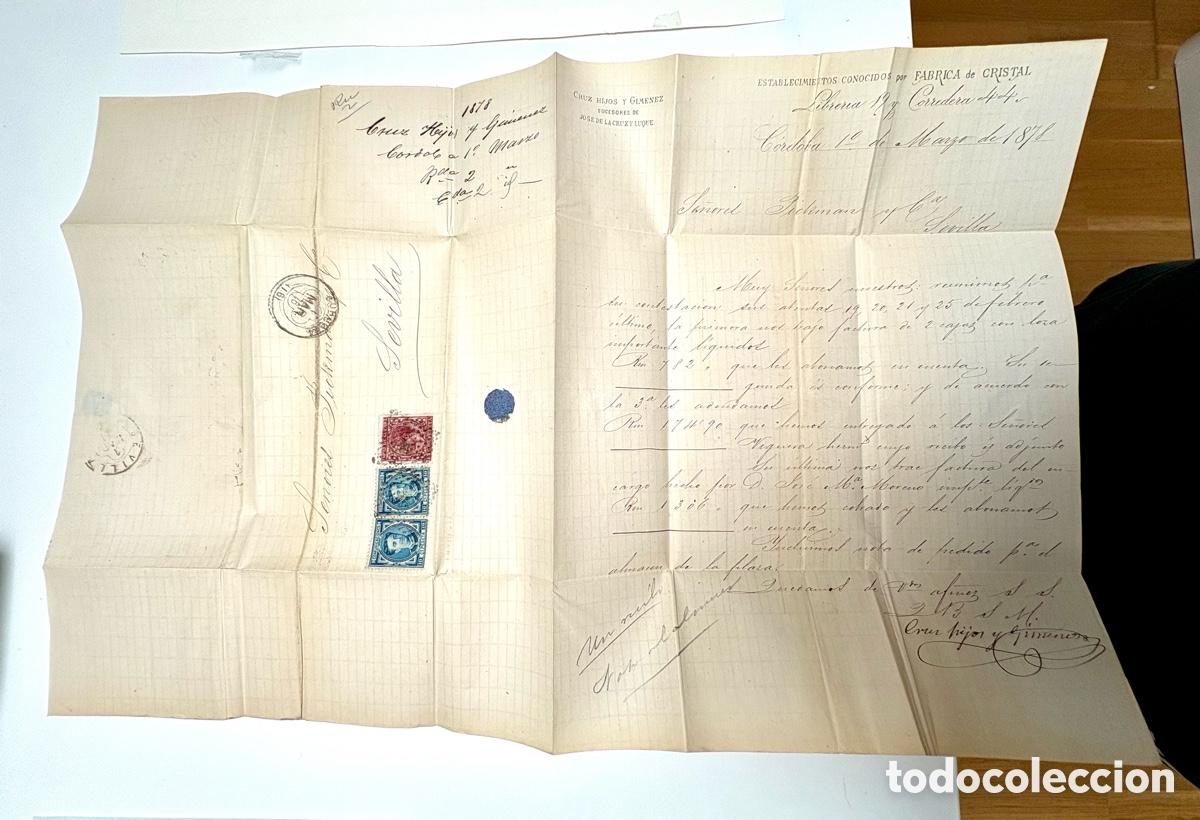 1878
Cruz Hijos y Gimenez
Cordoba 1º Marzo
Rda 2
Cda 2
CRUZ HIJOS Y GIMENEZ
SUCESORES DE
JOSÉ DE LA CRUZ Y LUQUE
ESTABLECIMIENTOS CONOCIDOS por FABRICA de CRISTAL
Libreria 19 y Corredera 44.
Córdoba 1º de Marzo de 1878
Señores Pickman y Cª
Sevilla
Muy Señores nuestros: reunimos pª
su contestacion sus atentas 19, 20, 21 y 25 de febrero
último, la primera nos trajo factura de 2 cajas con loza
importante líquidos
Rvn 782, que les abonamos en cuenta. Su se-
gunda es conforme; y de acuerdo con
la 3ª les adeudamos
Rvn 174'90 que hemos entregado á los Señores
Viguera hermº cuyo recibo és adjunto
Su última nos trae factura del en-
cargo hecho por D. José Mª Moreno impte liqdo
Rvn 1306, que hemos cobrado y les abonamos
en cuenta.
Incluimos nota de pedido pª el
almacen de la plaza.
Quedamos de Vdes afmos S. S.
Q B S M.
Cruz hijos y Gimenez
Un recibo
Señores Pickman y Cª
Sevilla
CORDOBA
MAR
SEVILLA
todocoleccion